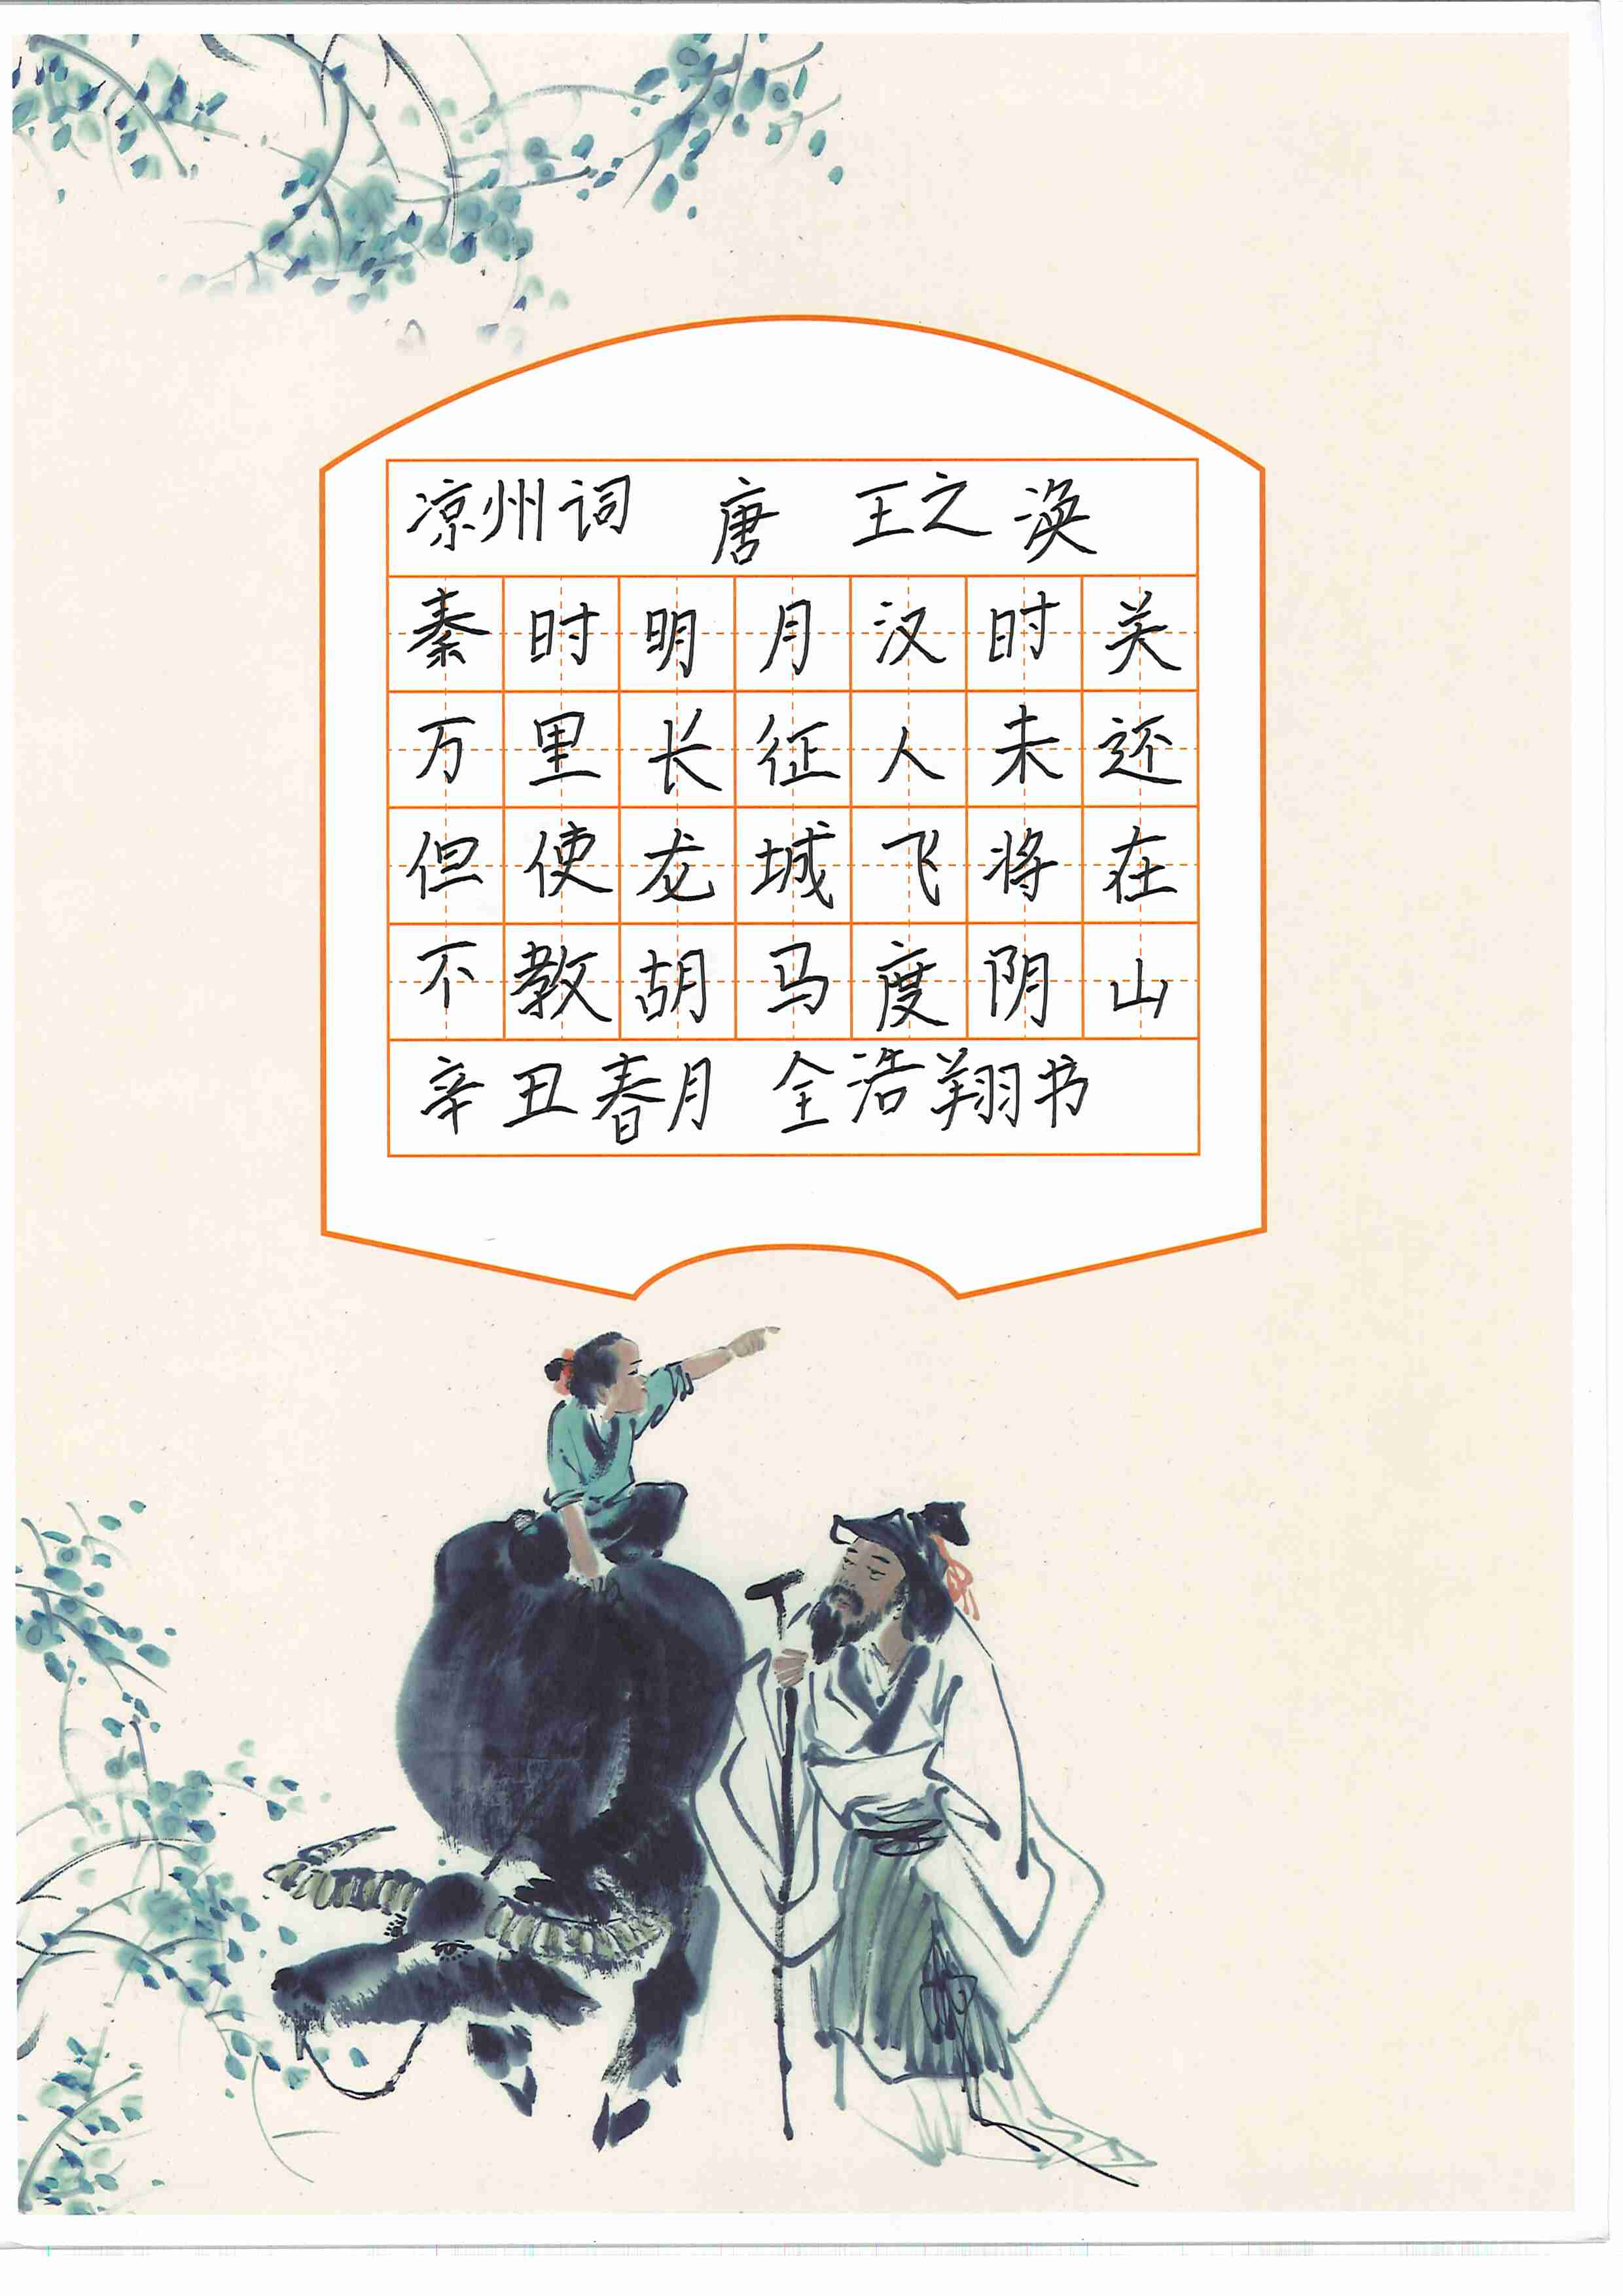 凉州词 唐 王之涣
秦时明月汉时关
万里长征人未还
但使龙城飞将在
不教胡马度阴山
辛丑春月 全浩翔书